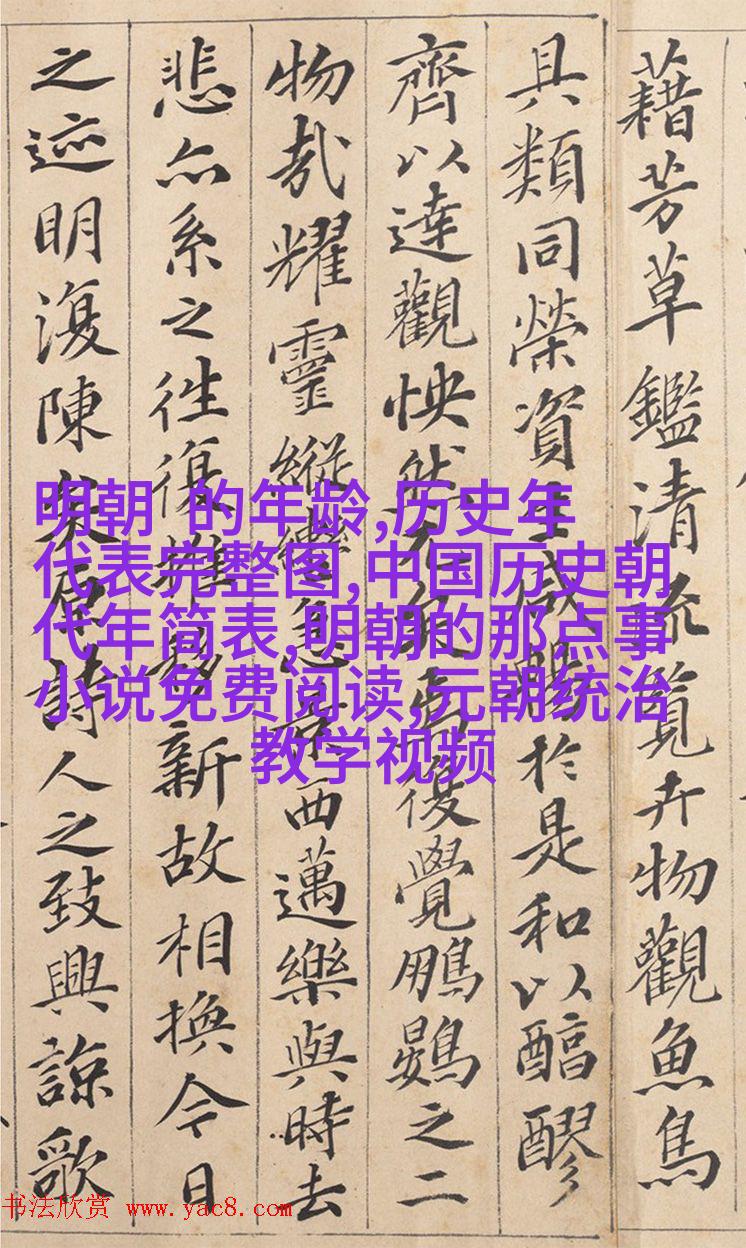 藉芳草鑑清流覽卉物觀魚鳥
具類同榮資生咸暢於是和以醇醪
齊以達觀怏然兀矣焉復覺鵬鷃之二
物哉耀靈縱轡急景西邁樂與時去
悲亦系之往復推移新故相換今日
之迹明復陳矣原詩人之致興諒歌
明朝 的年龄,历史年
代表完整图,中国历史朝
代年简表,明朝的那点事
小说免费阅读,元朝统治
教学视频
书法欣赏 www.yac8.com